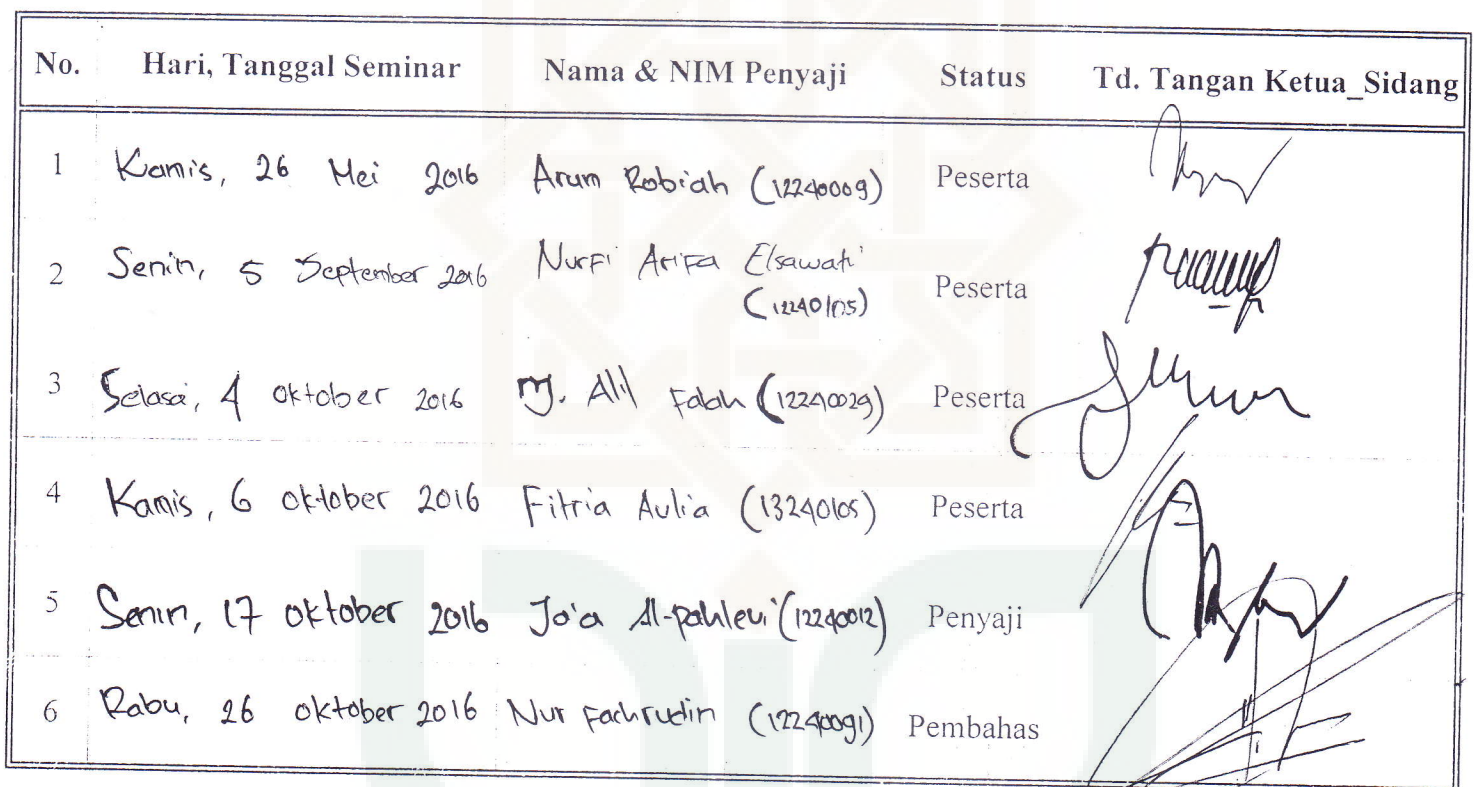 No. Hari, Tanggal Seminar Nama & NIM Penyaji Status Td. Tangan Ketua_Sidang
1 Kamis, 26 Mei 2016 Arum Robiah (12240009) Peserta
2 Senin, 5 September 2016 Nurfi Arifa Elsawati Peserta
(12240105)
3 Selasa, 4 oktober 2016 M. Alil Falah (12240029) Peserta
4 Kamis, 6 oktober 2016 Fitria Aulia (13240105) Peserta
5 Senin, 17 oktober 2016 Jo'a Al-pahlevi (12240012) Penyaji
6 Rabu, 26 oktober 2016 Nur Fachrudin (12240091) Pembahas